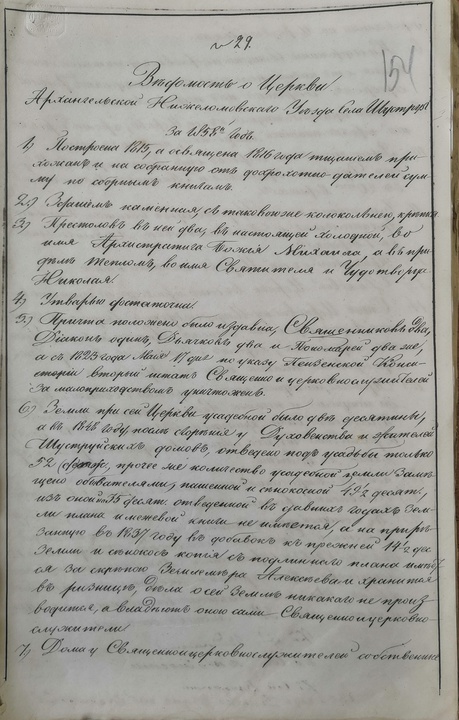 № 29.
154
Вѣдомость о Церкви
Архангельской Нижеломовскаго Уѣзда Села Шуструй
За 1858й годъ.
1) Построена 1815, а освящена 1816 года тщаніемъ при-
хожанъ и на собранную отъ доброхотно-дателей сум-
му по собрнымъ книгамъ.
2) Зданіемъ каменная, съ таковою же колокольнею, крѣпка
3) Престоловъ въ ней два, въ настоящей холодной, во
имя Архистратига Божія Михаила, а въ при-
дѣлѣ тепломъ, во имя Святителя и Чудотворца
Николая.
4) Утварью достаточна.
5) Причта положено было издавна, Священниковъ два,
Діаконъ одинъ, Дьячковъ два и Пономарей два же,
а съ 1823 года Маія 17 дня по указу Пензенской Конси-
сторіи вторый штатъ Священно и церковнослужителей
за малоприходствомъ уничтоженъ.
6) Земли при сей Церкви усадебной было двѣ десятины,
а въ 1848 году, послѣ сгорѣнія у Духовенства и жителей
Шуструйскихъ домовъ, отведено подъ усадьбы только
52 прочее же количество усадебной земли замѣ-
щено обывателями; пашенной и сѣнокосной 49½ десят.,
изъ оной на 35 десят. отведенной въ давнихъ годахъ зем-
ли плана и межевой книги не имѣется, а на прирѣ-
занную въ 1837 году въ добавокъ къ прежней 14½ дес.
земли и сѣнокосъ копія съ подлиннаго плана имѣет-
ся за скрѣпою Землемѣра Алексѣева и хранится
въ ризницѣ, дѣла о сей землѣ никакаго не произ
водится, а владѣютъ оною сами Священно и церковно-
служители.
7) Домы у Священно и церковнослужителей собственные